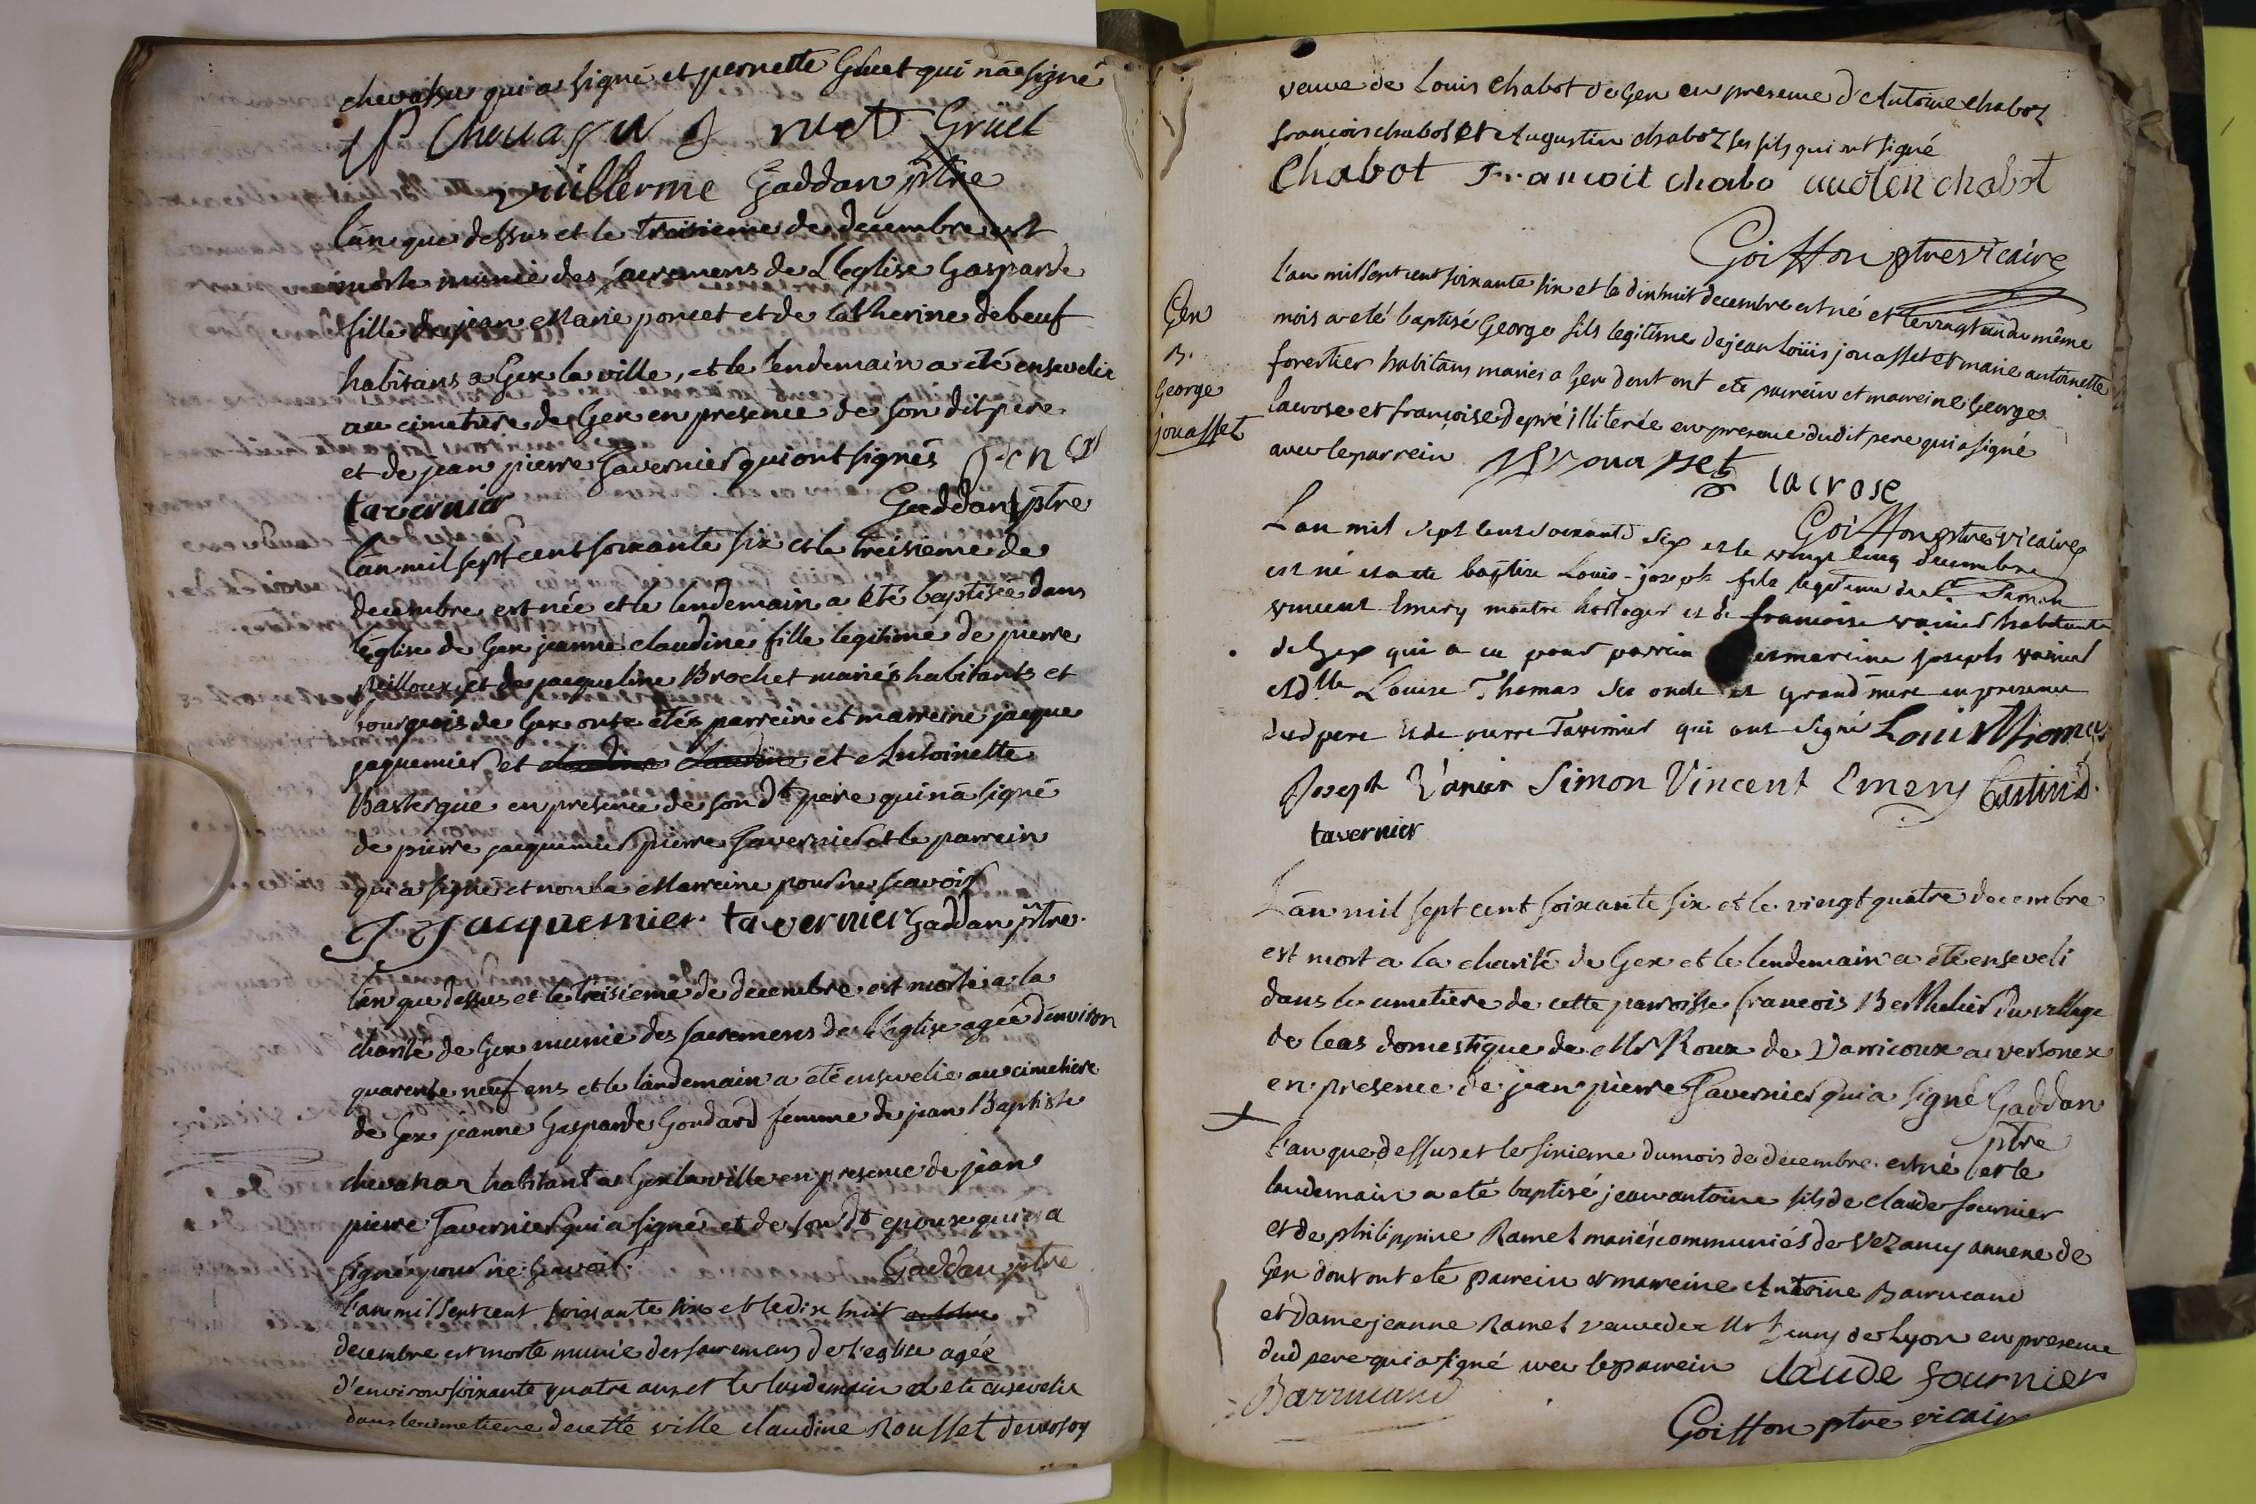 chevassu qui a signé et pernette Gruet qui n'a signé
Chouassu Gruet
vuillerme Gaddan ptre
l'an que dessus et le troisieme de decembre est
morte munie des sacremens de L'Eglise Gasparde
fille de jean Marie poncet et de Catherine debeuf
habitans a Gex la ville, et le lendemain a été ensevelie
au cimetiere de Gex en presence de son dit pere
et de jean pierre Tavernier qui ont signés
tavernier Gaddan ptre
L'an mil sept cent soixante six et le treisieme de
decembre est née et le lendemain a été baptisée dans
l'eglise de Gex jeanne claudine fille legitime de pierre
pilloux et de jacqueline Brochet mariés habitants et
bourgeois de Gex onts étés parrein et marreine jacque
jaquemier et et Antoinette
Bastergue en presence de son dt pere qui n'a signé
de pierre jacquemier pierre Tavernier et le parrein
qui a signé et non la Marreine pour ne scavoir
Jacquemier tavernier Gaddan ptre
L'an que dessus et le treisieme de decembre est morte a la
charité de Gex munie des sacremens de L'Eglise agée d'environ
quarente neuf ans et le landemain a été ensevelie au cimetiere
de Gex jeanne Gasparde Goudard femme de jean Baptiste
habitant a Gex la ville en presence de jean
pierre Tavernier qui a signé et de son dt epoux qui n'a
signé pour ne scavoir. Gaddan ptre
L'an mil sept cent soixante six et le dix huit
decembre est morte munie des sacremens de l'eglise agée
d'environ soixante quatre ans et le lendemain a été ensevelie
dans le cimetiere de cette ville claudine Rousset
veuve de Louis Chabot de Gex en presence d'Antoine chabot
francois chabot et Augustin chabot ses fils qui ont signé
Chabot Francoit chabo chabot
Goiffon ptre vicaire
Gex
B.
George
jouasset
L'an mil sept cent soixante six et le dixhuit decembre est né et le vingt un du même
mois a eté baptisé George fils legitime de jean Loüis jouasset et marie antoinette
forestier habitans mariés a Gex dont ont eté parrein et marreine George
lacrose et françoise depré illiterée en presence dudit pere qui a signé
avec le parrein Jouasset lacrose
Goiffon ptre vicaire
L'an mil sept cent soixante six et le vingt cinq decembre
est né et a eté baptisé Louis-joseph fils legitime de Sr. Simon
vincent Emery maitre horloger et de francoise vanier habitants
de Gex qui a eu pour parrein et mareine joseph vanier
et dlle Louise Thomas ses oncle et grand'mere en presence
dud pere et de pierre Tavernier qui ont signé Louise Thomas
Joseph Vanier Simon Vincent Emery
tavernier
L'an mil sept cent soixante six et le vingt quatre decembre
est mort a la charité de Gex et le lendemain a été enseveli
dans le cimetiere de cette parroisse francois Berthelier du village
de leas domestique de Mr Roux de Varricoux a versonex
en presence de jean pierre Tavernier qui a signé Gaddan
ptre
L'an que dessus et le sixieme du mois de decembre est né et le
landemain a eté baptisé jean antoine fils de claude fournier
et de philippine Ramel mariés communiés de Vezancy annexe de
Gex dont ont eté parrein et marreine Antoine Barrucand
et Dame jeanne Ramel veuve de Mr de Lyon en presence
dud pere qui a signé avec le parrein Claude fournier
Barrucand
Goiffon ptre vicaire